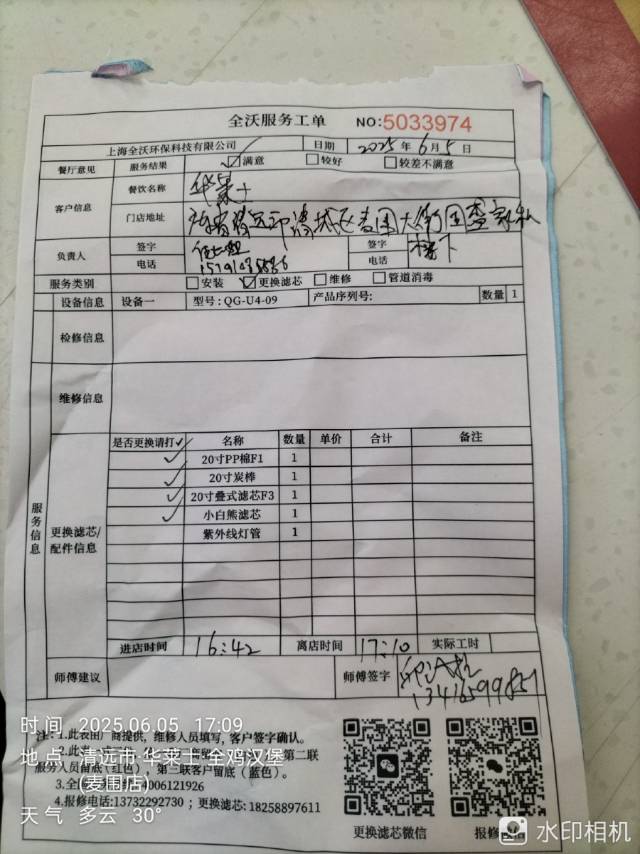 全沃服务工单 NO:5033974
上海全沃环保科技有限公司 日期 2025年6月5日
餐厅意见 服务结果 ☑满意 □较好 □较差不满意
客户信息 餐饮名称 华莱士
门店地址 清远市清城区麦围大街
负责人 签字 签字 楼下
电话 电话
服务类别 □安装 ☑更换滤芯 □维修 □管道消毒
设备信息 设备一 型号:QG-U4-09 产品序列号: 数量 1
检修信息
维修信息
服务信息
更换滤芯/配件信息
是否更换请打✓ 名称 数量 单价 合计 备注
✓ 20寸PP棉F1 1
✓ 20寸炭棒 1
✓ 20寸叠式滤芯F3 1
✓ 小白熊滤芯 1
紫外线灯管 1
进店时间 16:42 离店时间 17:10 实际工时
师傅建议 师傅签字
注:1.此表由厂商提供，维修人员填写，客户签字确认。
2.此 第二联
服务人员留底（红色），第三联客户留底（蓝色）。
3.全 006121926
4.报修电话:13732292730；更换滤芯:18258897611
更换滤芯微信 报修微信
时间 2025.06.05 17:09
地点 清远市·华莱士·全鸡汉堡
(麦围店)
天气 多云 30°
水印相机